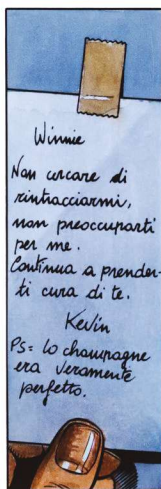 Winnie
Non cercare di
rintracciarmi,
non preoccuparti
per me.
Continua a prender-
ti cura di te.
Kevin
PS= lo champagne
era veramente
perfetto.